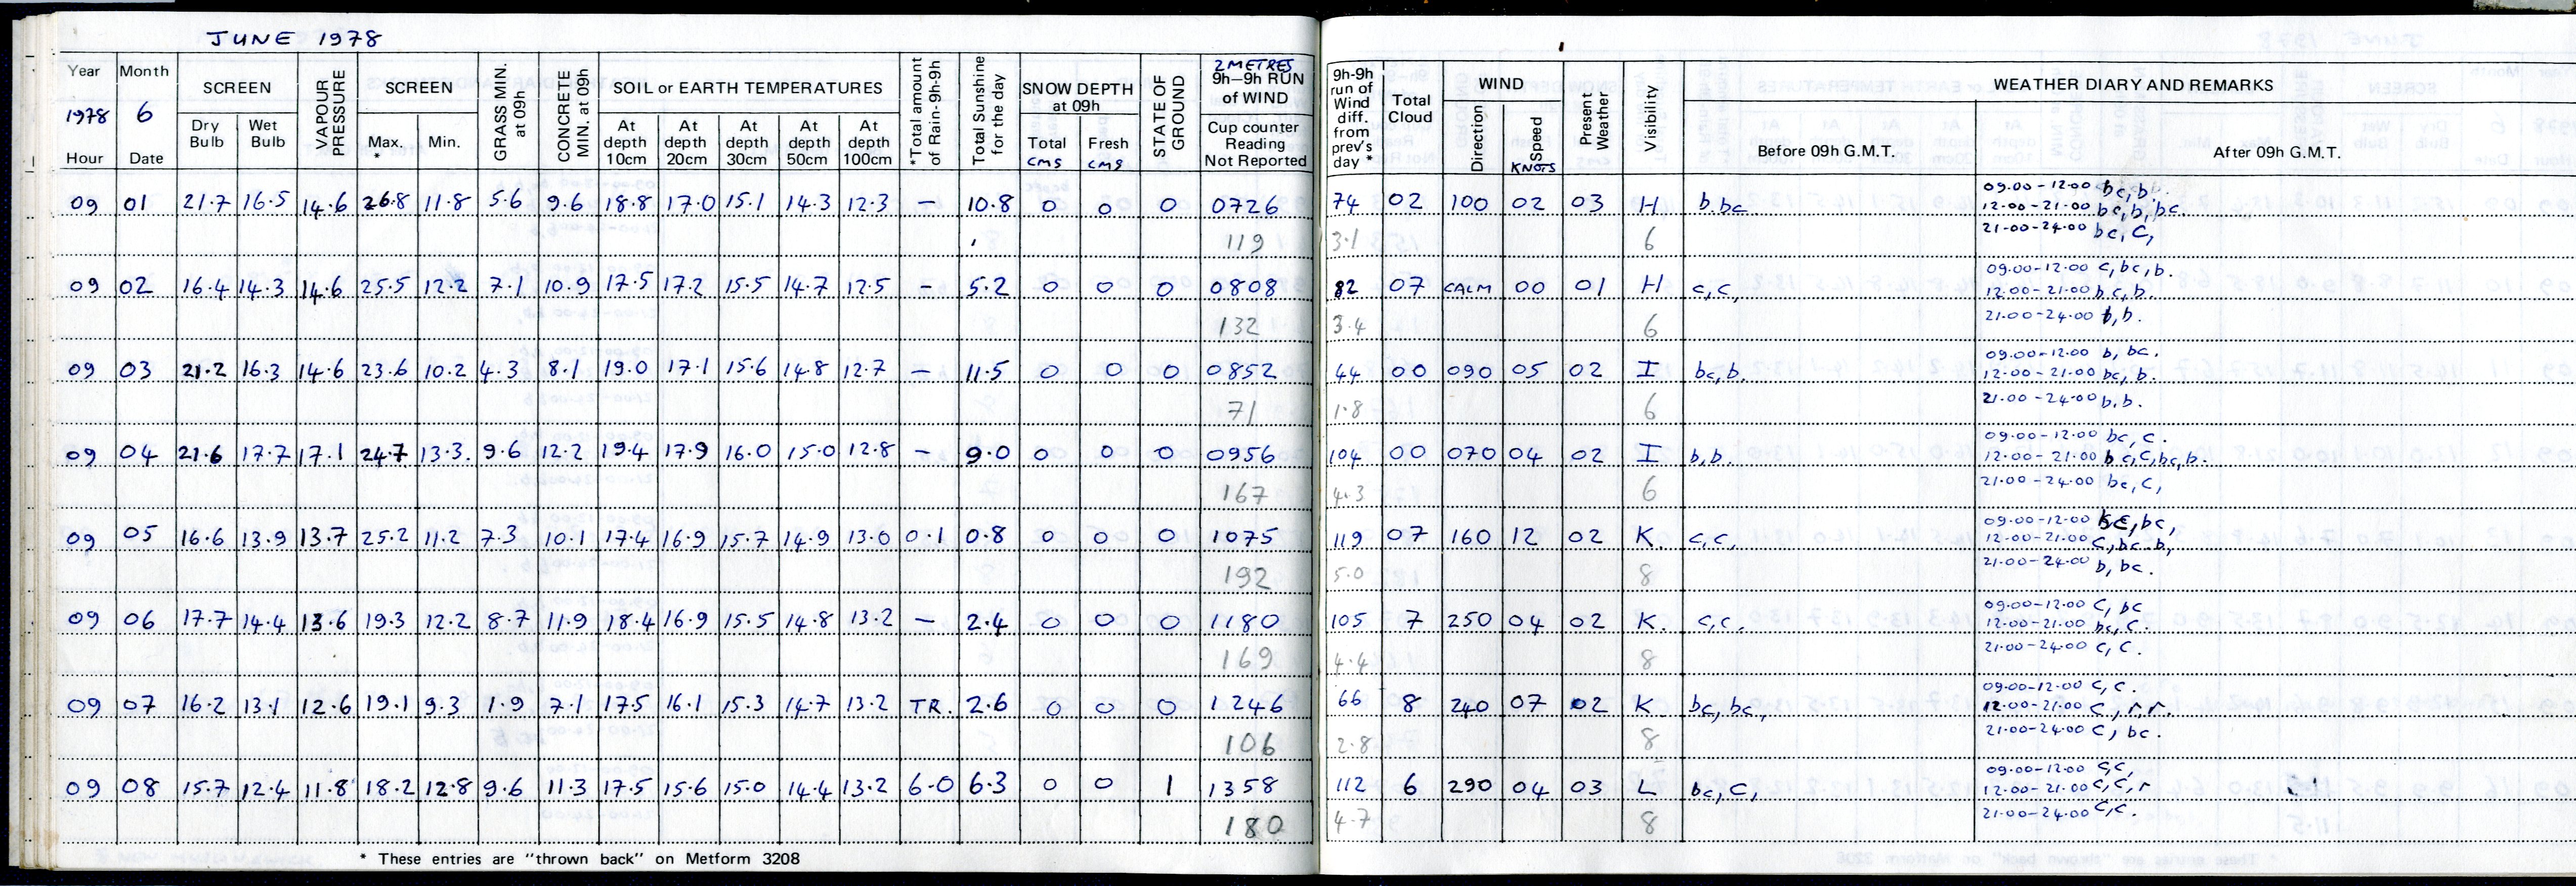 JUNE 1978
Year Month SCREEN VAPOUR PRESSURE SCREEN GRASS MIN. at 09h CONCRETE MIN. at 09h SOIL or EARTH TEMPERATURES *Total amount of Rain-9h-9h Total Sunshine for the day SNOW DEPTH at 09h STATE OF GROUND 2 METRES 9h–9h RUN of WIND 9h-9h run of Wind diff. from prev's day * Total Cloud WIND Present Weather Visibility WEATHER DIARY AND REMARKS
1978 6
Hour Date Dry Bulb Wet Bulb Max. * Min. At depth 10cm At depth 20cm At depth 30cm At depth 50cm At depth 100cm Total CMS Fresh CMS Cup counter Reading Not Reported Direction Speed KNOTS Before 09h G.M.T. After 09h G.M.T.
09 01 21.7 16.5 14.6 26.8 11.8 5.6 9.6 18.8 17.0 15.1 14.3 12.3 – 10.8 0 0 0 0726 74 02 100 02 03 H b,bc 09.00-12.00 bc,b.
12.00-21.00 bc,b,bc.
119 3.1 6 21-00-24.00 bc,c,
09 02 16.4 14.3 14.6 25.5 12.2 7.1 10.9 17.5 17.2 15.5 14.7 12.5 – 5.2 0 0 0 0808 82 07 CALM 00 01 H c,c, 09.00-12.00 c,bc,b.
12.00-21.00 bc,b.
132 3.4 6 21.00-24.00 b,b.
09 03 21.2 16.3 14.6 23.6 10.2 4.3 8.1 19.0 17.1 15.6 14.8 12.7 – 11.5 0 0 0 0852 44 00 090 05 02 I bc,b. 09.00-12.00 b, bc.
12.00-21.00 bc, b.
71 1.8 6 21.00-24.00 b,b.
09 04 21.6 17.7 17.1 24.7 13.3. 9.6 12.2 19.4 17.9 16.0 15.0 12.8 – 9.0 0 0 0 0956 104 00 070 04 02 I b,b. 09.00-12.00 bc, c.
12.00-21.00 bc,c,bc,b.
167 4.3 6 21.00-24.00 bc, c,
09 05 16.6 13.9 13.7 25.2 11.2 7.3 10.1 17.4 16.9 15.7 14.9 13.0 0.1 0.8 0 0 0 1075 119 07 160 12 02 K. c,c, 09.00-12.00 c,bc,
12.00-21.00 c,bc,b,
192 5.0 8 21.00-24.00 b, bc.
09 06 17.7 14.4 13.6 19.3 12.2 8.7 11.9 18.4 16.9 15.5 14.8 13.2 – 2.4 0 0 0 1180 105 7 250 04 02 K. c,c. 09.00-12.00 c, bc
12.00-21.00 bc, c.
169 4.4 8 21.00-24.00 c, c.
09 07 16.2 13.1 12.6 19.1 9.3 1.9 7.1 17.5 16.1 15.3 14.7 13.2 TR. 2.6 0 0 0 1246 66 8 240 07 02 K. bc, bc, 09.00-12.00 c, c.
12.00-21.00 c, r, r.
106 2.8 8 21.00-24.00 c, bc.
09 08 15.7 12.4 11.8 18.2 12.8 9.6 11.3 17.5 15.6 15.0 14.4 13.2 6.0 6.3 0 0 1 1358 112 6 290 04 03 L bc,c, 09.00-12.00 c,c,
12.00-21.00 c,c,r
180 4.7 8 21.00-24.00 c,c.
* These entries are "thrown back" on Metform 3208